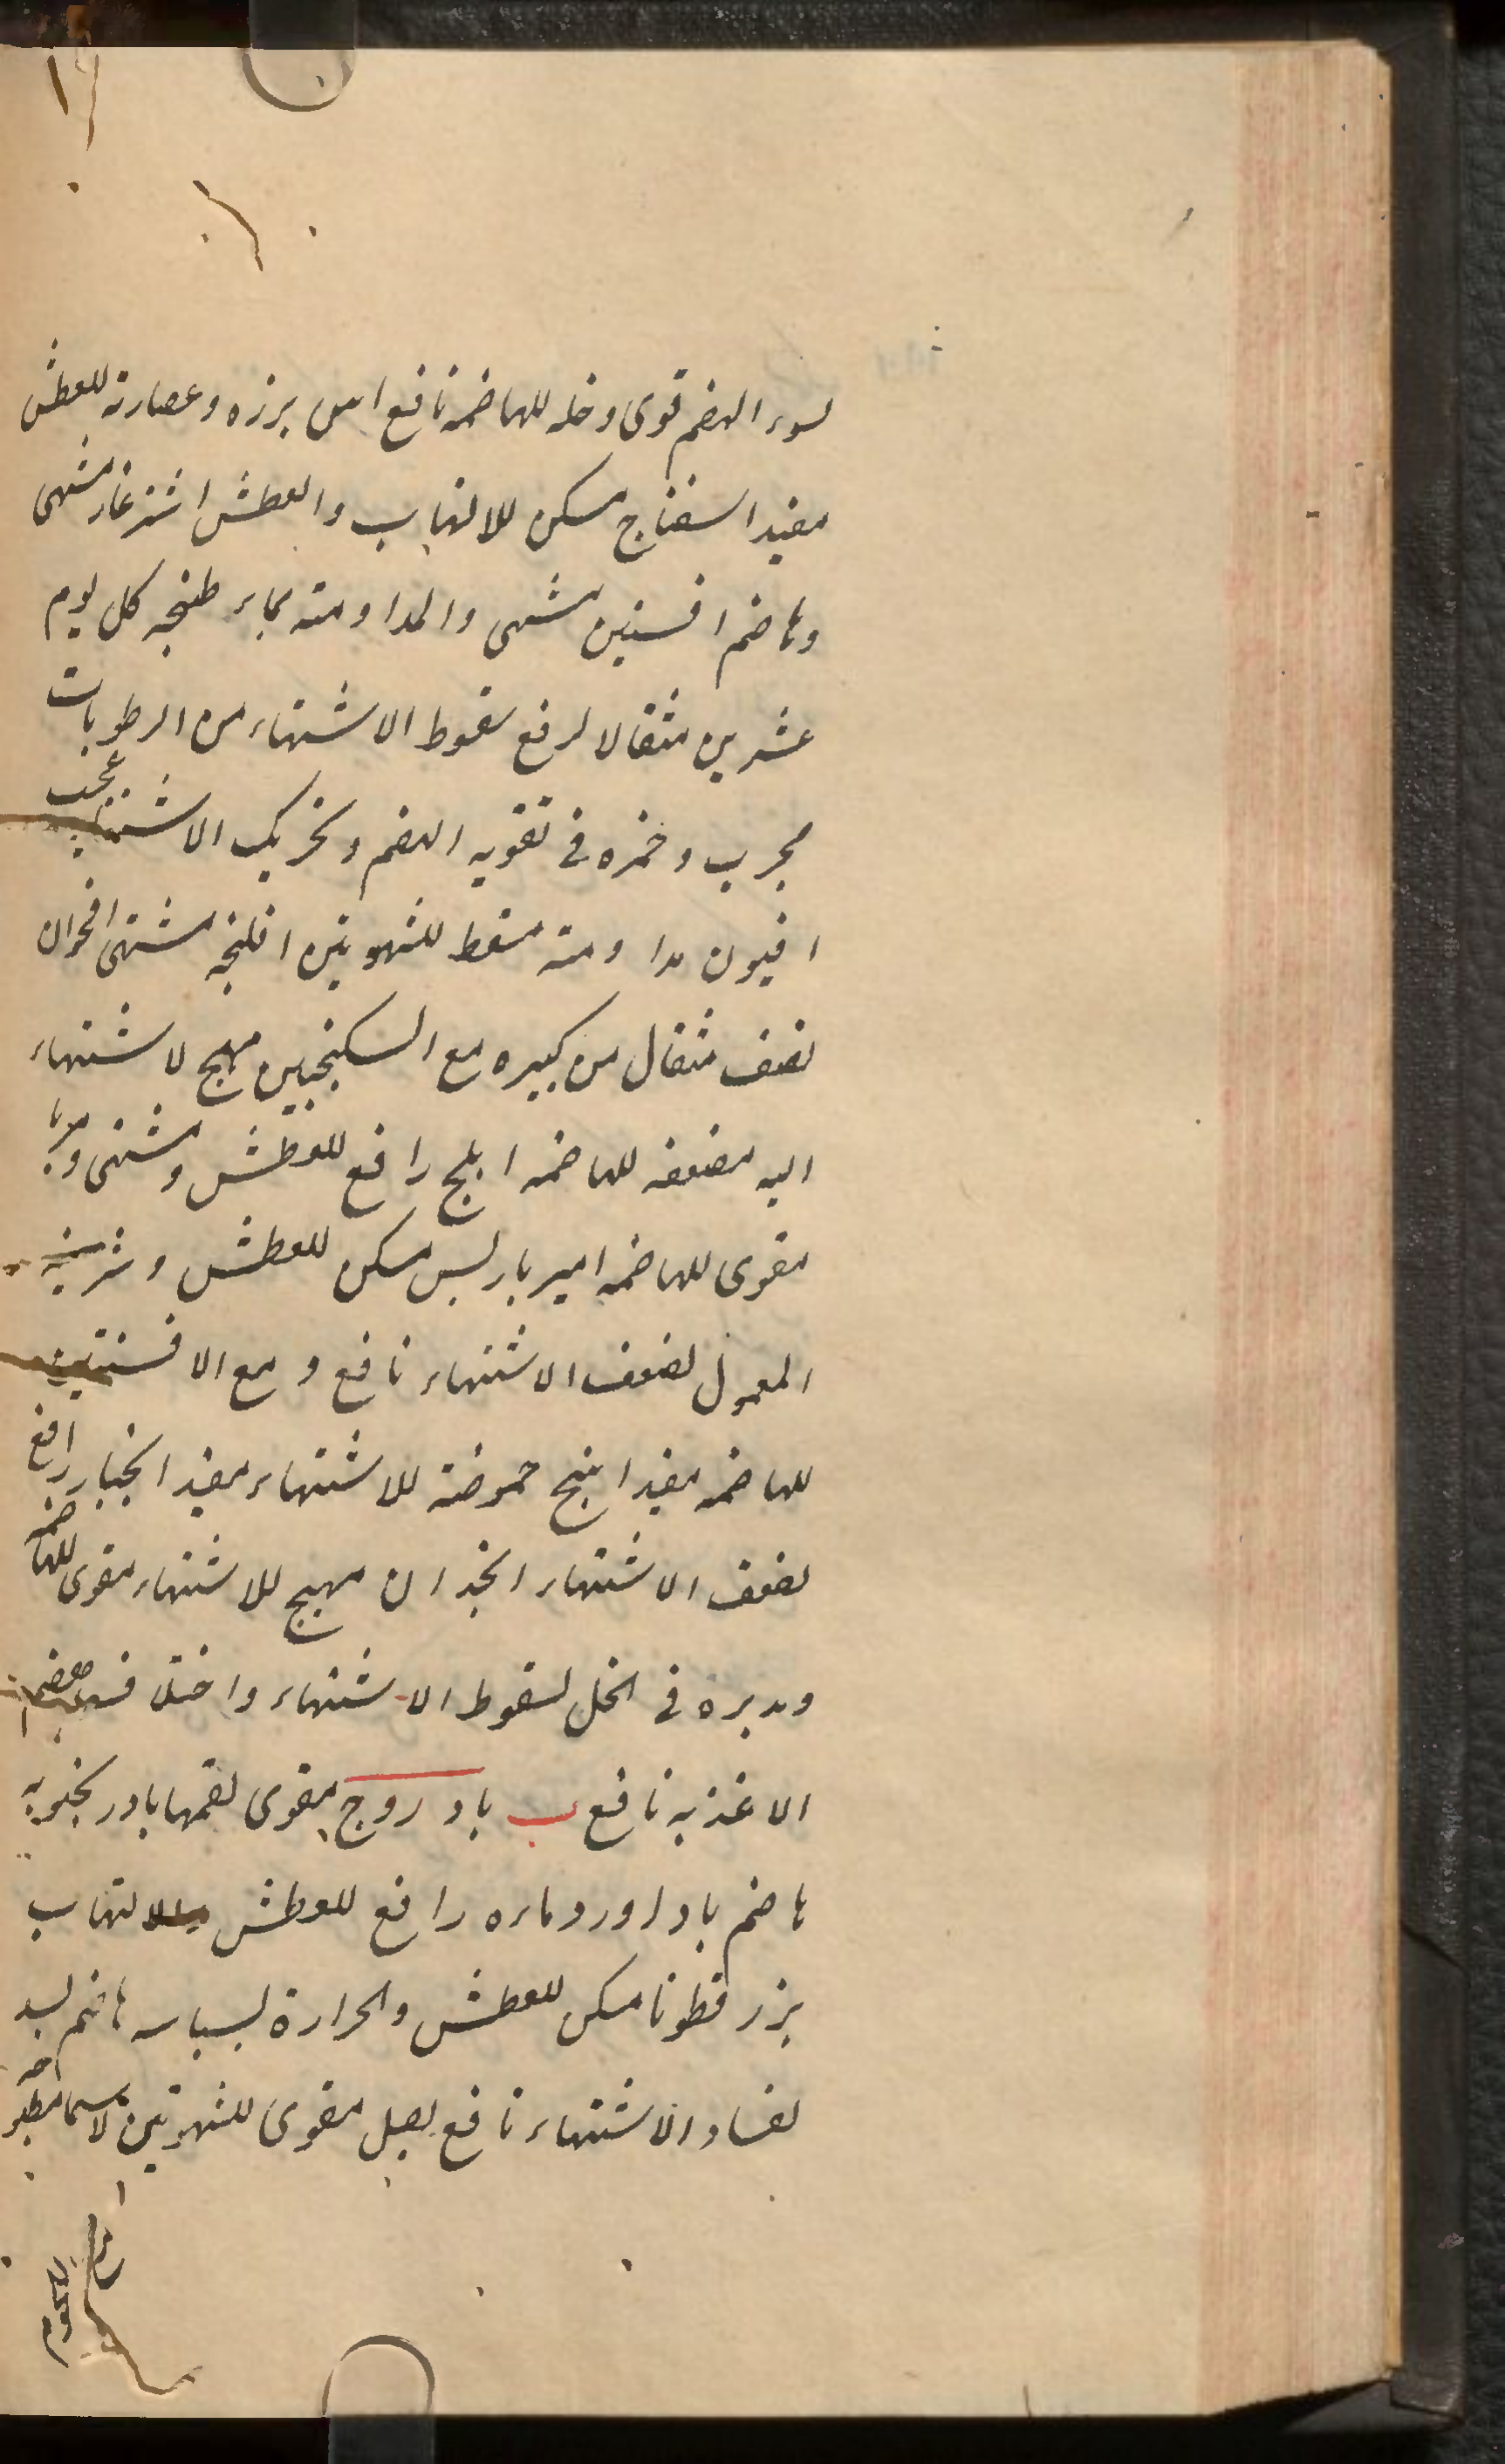 لسوء الهضم قوی وخله للهاضمه نافع اس برزه وعصارته للعطش
مفید اسفناج مسکن للالتهاب والعطش اشترغاز مشهی
وهاضم افسنتین مشهی والمداومته بماء طبخه کل یوم
عشرین مثقالا لرفع سقوط الاشتهاء من الرطوبات
مجرب وخمره فی تقویه الهضم وتحریک الاشتهاء عجیب
افیون مداومته مسقط للشهوتین افلنجه مشتهی اقحوان
نصف مثقال من کبیره مع السکنجبین مهیج لاشتهاء
الیه مضعفه للهاضمه ابلج رافع للعطش ومشتهی ومرباه
مقوی للهاضمه امیرباریس مسکن للعطش وشربته
المعمول لضعف الاشتهاء نافع ومع الافسنتین
للهاضمه مفید انبج حموضته للاشتهاء مفید انجبار رافع
لضعف الاشتهاء انجدان مهیج للاشتهاء مقوی للهاضمه
ومدبره فی الخل لسقوط الاشتهاء واختلاف هضم
الاغذیه نافع ب بادروج مقوی لفمها بادرنجبویه
هاضم باداورد ماءه رافع للعطش والالتهاب
بزر قطونا مسکن للعطش والحرارة بسباسه هاضم بسد
لفساد الاشتهاء نافع بصل مقوی للشهوتین لاسیما مطبوخه
اللحوم